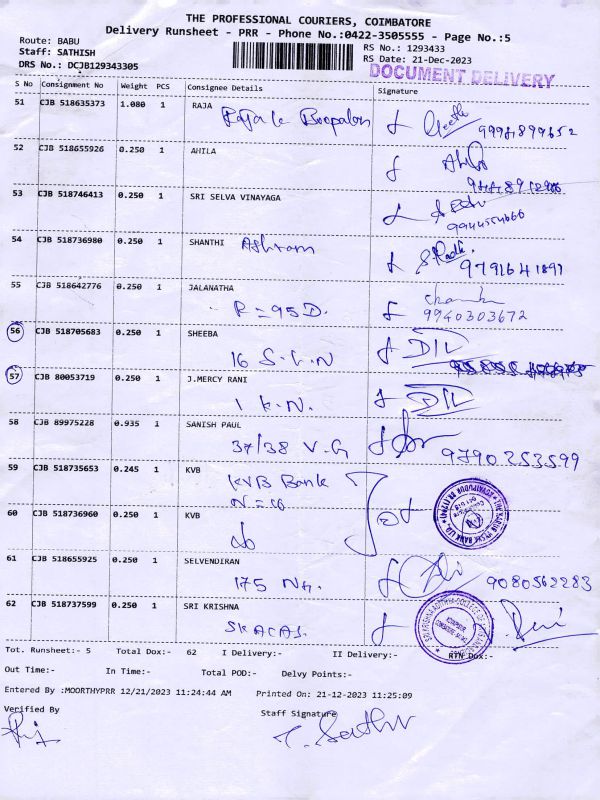 THE PROFESSIONAL COURIERS, COIMBATORE
Delivery Runsheet - PRR - Phone No.:0422-3505555 - Page No.:5
Route: BABU
RS No.: 1293433
Staff: SATHISH
RS Date: 21-Dec-2023
DRS No.: DCJB129343305
DOCUMENT DELIVERY
S No Consignment No Weight PCS Consignee Details Signature
51 CJB 518635373 1.080 1 RAJA
Geetha 9994899652
52 CJB 518655926 0.250 1 AHILA
53 CJB 518746413 0.250 1 SRI SELVA VINAYAGA
9944554666
54 CJB 518736980 0.250 1 SHANTHI Ashram
9791641897
55 CJB 518642776 0.250 1 JALANATHA
R = 95 D. 9940303672
56 CJB 518705683 0.250 1 SHEEBA
16 S.L.N D/L
57 CJB 80053719 0.250 1 J.MERCY RANI
1 K.N. D/L
58 CJB 89975228 0.935 1 SANISH PAUL
37/38 V.G 9790253599
59 CJB 518735653 0.245 1 KVB
KVB Bank
60 CJB 518736960 0.250 1 KVB
61 CJB 518655925 0.250 1 SELVENDIRAN
175 9080562283
62 CJB 518737599 0.250 1 SRI KRISHNA
SKACAS.
Tot. Runsheet:- 5 Total Dox:- 62 I Delivery:- II Delivery:- RTN Dox:-
Out Time:- In Time:- Total POD:- Delvy Points:-
Entered By :MOORTHYPRR 12/21/2023 11:24:44 AM Printed On: 21-12-2023 11:25:09
Verified By Staff Signature